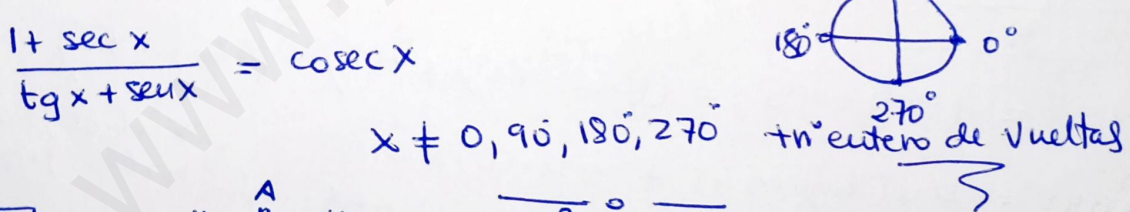 1+ sec x
tg x + sen x
= cosec x
180° 0°
270°
x ≠ 0, 90°, 180°, 270° + nº entero de vueltas
A